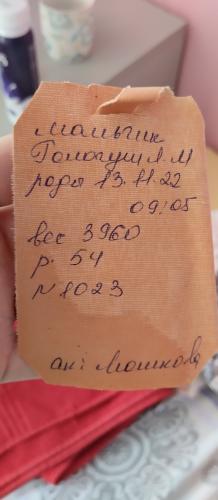 мальчик
Гологуш А.М
родл 13.11.22
09:05
вес 3960
р. 54
N 1023
ак: Мошкова